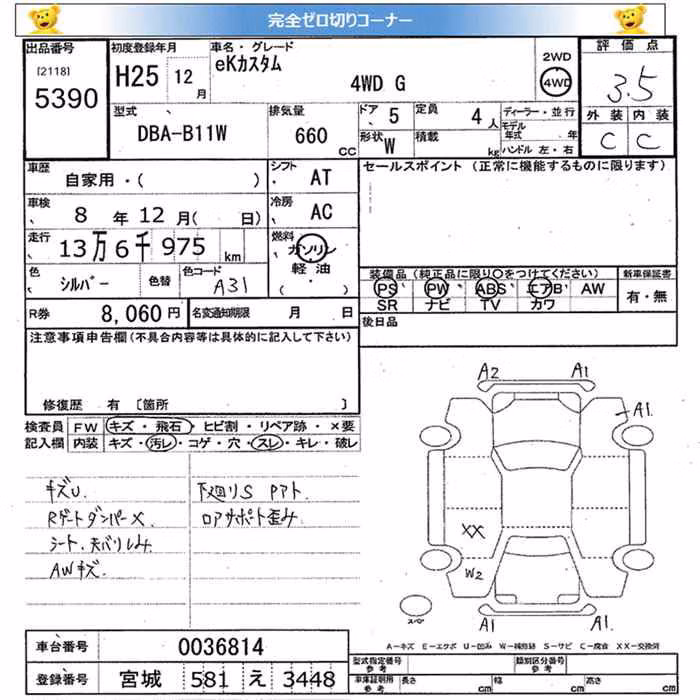 完全ゼロ切りコーナー
出品番号
[2118]
5390
初度登録年月
H25 12 月
車名・グレード
eKカスタム
4WD G
2WD
4WD
評価点
3.5
外装 内装
C C
型式
DBA-B11W
排気量
660 CC
ドア 5
定員 4 人
形状 W
積載 kg
ディーラー・並行
モデル年式 年
ハンドル 左・右
車歴
自家用・( )
シフト AT
セールスポイント (正常に機能するものに限ります)
車検
8 年 12 月( 日)
冷房 AC
走行
13万 6千 975 km
燃料
ガソリン
軽油
( ・ )
色
シルバー
色替
色コード
A31
装備品(純正品に限り○をつけてください)
PS PW ABS エアB AW
SR ナビ TV カワ
新車保証書
有・無
R券 8,060 円
名変通知期限 月 日
後日品
注意事項申告欄(不具合内容等は具体的に記入して下さい)
修復歴 有 〔箇所 〕
検査員 FW キズ・飛石・ヒビ割・リペア跡・×要
記入欄 内装 キズ・汚レ・コゲ・穴・スレ・キレ・破レ
キズU
RゲートダンパーX
シート、天バリしみ
AWキズ
下廻りS Pアト
ロアサポート歪み
A2 A1
A1
XX
W2
A1 A1
スペア
A-キズ E-エクボ U-凹み W-補修跡 S-サビ C-腐食 XX-交換済
車台番号 0036814
登録番号 宮城 581 え 3448
型式指定番号 参考
類別区分番号 参考
車庫証明用 参考 長さ cm 幅 cm 高さ cm